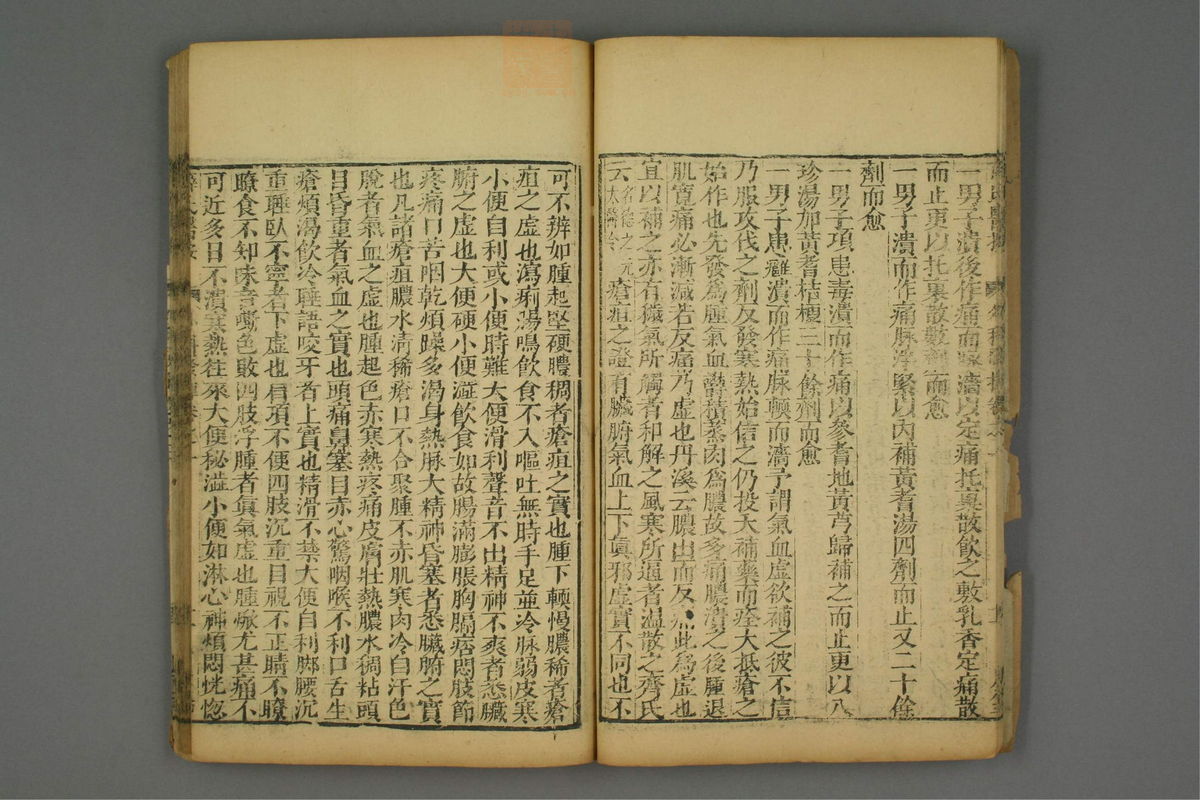 一男子潰後作痛而瘍濇以定痛托裏散飲之敷乳香定痛散
而止更以托裏散數劑而愈
一男子潰而作痛脉浮緊以內補黃芪湯四劑而止又二十餘
劑而愈
一男子項患毒潰而作痛以參芪地黃芎歸補之而止更以八
珍湯加黃芪桔梗三十餘劑而愈
一男子患癰潰而作痛脉頓而濇予謂氣血虛欲補之彼不信
乃服攻伐之劑反發寒熱始信之仍投大補藥而痊大抵瘡之
始作也先發爲腫氣血鬱積蒸肉爲膿故多痛膿潰之後腫退
肌寬痛必漸減若反痛乃虛也丹溪云膿出而反痛此爲虛也
宜以補之亦有穢氣所觸者和解之風寒所逼者溫散之齊氏
云名德之元太醫令瘡疽之證有臟腑氣血上下眞邪虛實不同也不
可不辨如腫起堅硬膿稠者瘡疽之實也腫下頓慢膿稀者瘡
疽之虛也瀉痢腸鳴飲食不入嘔吐無時手足並冷脉弱皮寒
小便自利或小便時難大便滑利聲音不出精神不爽者悉臟
腑之虛也大便硬小便澁飲食如故腸滿膨脹胸膈痞悶肢節
疼痛口苦咽乾煩躁多渴身熱脉大精神昏塞者悉臟腑之實
也凡諸瘡疽膿水清稀瘡口不合聚腫不赤肌寒肉冷自汗色
脫者氣血之虛也腫起色赤寒熱疼痛皮膚壯熱膿水稠粘頭
目昏重者氣血之實也頭痛鼻塞目赤心驚咽喉不利口舌生
瘡煩渴飲冷睡語咬牙者上實也精滑不禁大便自利腳腰沉
重睡臥不寧者下虛也肩項不便四肢沉重目視不正睛不瞭
瞭食不知味音嘶色敗四肢浮腫者眞氣虛也腫焮尤甚痛不
可近多日不潰寒熱往來大便秘澁小便如淋心神煩悶恍惚